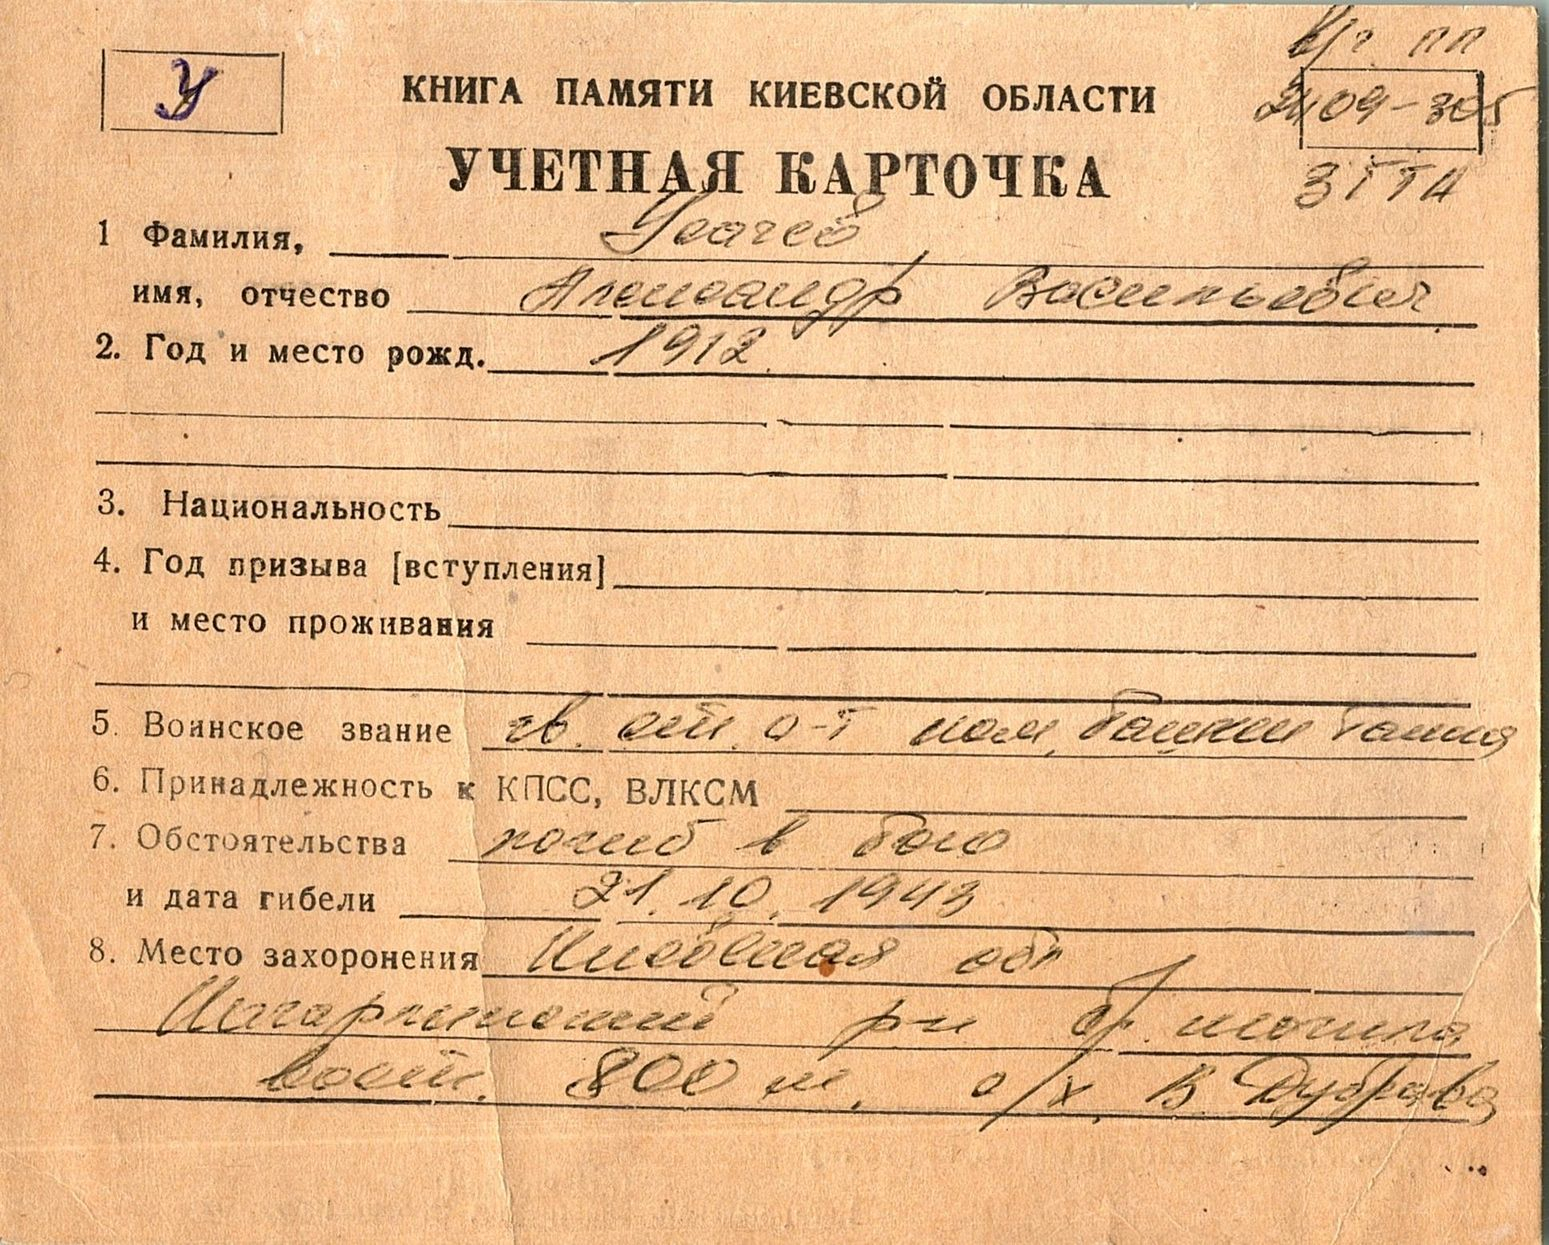 У
КНИГА ПАМЯТИ КИЕВСКОЙ ОБЛАСТИ
2409-305
УЧЕТНАЯ КАРТОЧКА
3 ГТА
1 Фамилия, Усачев
имя, отчество Александр Васильевич
2. Год и место рожд. 1912
3. Национальность
4. Год призыва [вступления]
и место проживания
5. Воинское звание гв. ст. с-т ком. башни танка
6. Принадлежность к КПСС, ВЛКСМ
7. Обстоятельства погиб в бою
и дата гибели 21.10.1943
8. Место захоронения Киевская обл
Кагарлыкский р-н бр. могила
вост. 800 м. с/х. В Дубрава